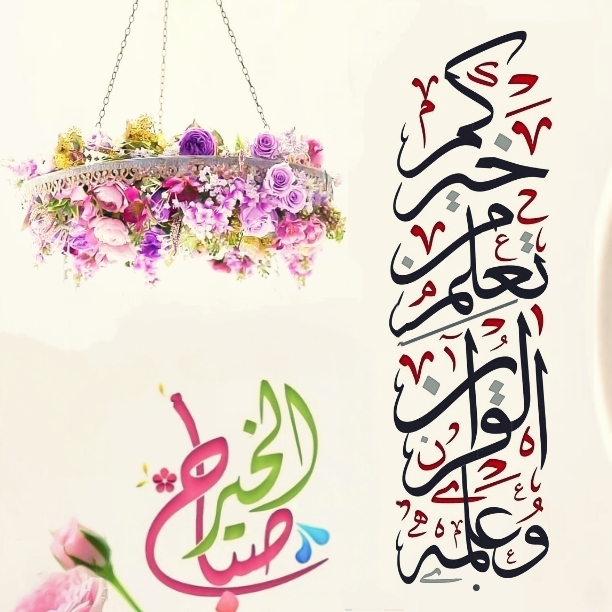 خيركم
من
تعلم
القرآن
وعلمه
صباح الخير